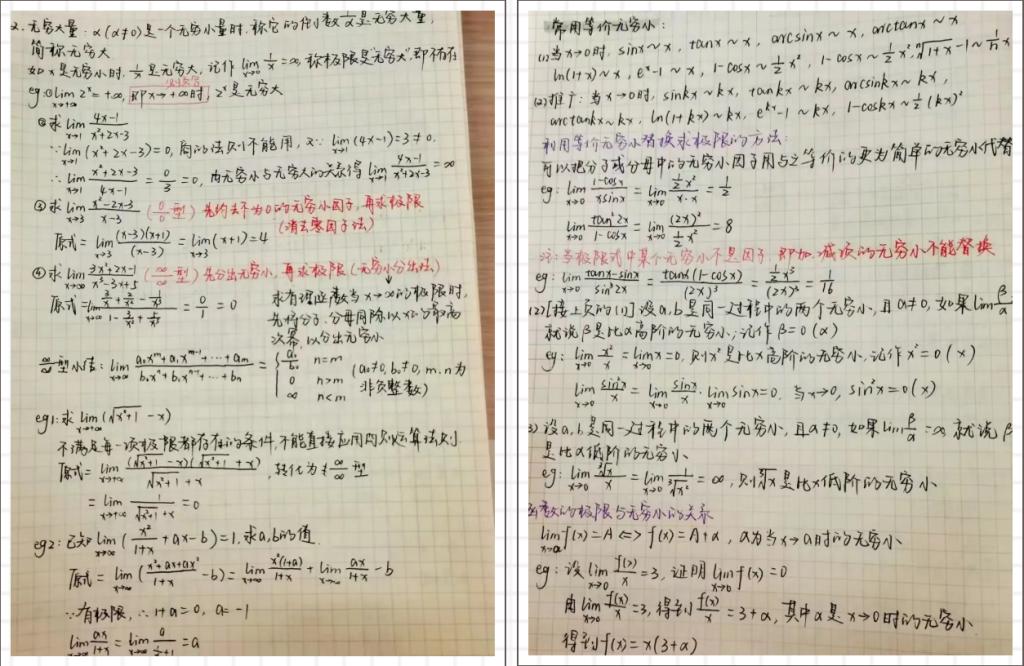 2. 无穷大量: α(α≠0)是一个无穷小量时,称它的倒数 1/α 是无穷大量,
简称无穷大
如x是无穷小时, 1/x 是无穷大, 记作 lim x→0 1/x = ∞, 称极限是"无穷大",即不存在
eg:① lim x→+∞ 2^x = +∞, 即x→+∞时, 2^x是无穷大
② 求 lim x→1 (4x-1)/(x²+2x-3)
∵ lim x→1 (x²+2x-3)=0, 商的法则不能用, 又∵ lim x→1 (4x-1)=3≠0.
∴ lim x→1 (x²+2x-3)/(4x-1) = 0/3 = 0, 由无穷小与无穷大的关系得 lim x→1 (4x-1)/(x²+2x-3) = ∞
③ 求 lim x→3 (x²-2x-3)/(x-3) (0/0型) 先约去不为0的无穷小因子, 再求极限
(消去零因子法)
原式= lim x→3 (x-3)(x+1)/(x-3) = lim x→3 (x+1)=4
④ 求 lim x→∞ (3x²+2x-1)/(x³-3x+5) (∞/∞型) 先分出无穷小, 再求极限 (无穷小分出法)
原式= lim x→∞ = 0/1 = 0
求有理函数当x→∞的极限时,
先将分子.分母同除以x的最高
次幂, 以分出无穷小
∞/∞型小结: lim x→∞ (a₀x^m+a₁x^(m-1)+…+am)/(b₀x^n+b₁x^(n-1)+…+bn) = { a₀/b₀ n=m
0 n>m
∞ n<m
(a₀≠0, b₀≠0, m.n为
非负整数)
eg1: 求 lim x→+∞ (√(x²+1) - x)
不满足每一项极限都存在的条件, 不能直接应用四则运算法则.
原式= lim x→+∞ (√(x²+1) - x)(√(x²+1) + x)/(√(x²+1) + x), 转化为 ∞/∞ 型
= lim x→+∞ 1/(√(x²+1)+x) = 0
eg2: 已知 lim x→∞ (x²/(1+x) + ax - b) = 1, 求a,b的值.
原式= lim x→∞ ((x²+ax+ax²)/(1+x) - b) = lim x→∞ x²(1+a)/(1+x) + lim x→∞ ax/(1+x) - b
∵有极限, ∴1+a=0, a=-1
lim x→∞ ax/(1+x) = lim x→∞ a/(1/x+1) = a
常用等价无穷小:
(1)当x→0时, sinx~x, tanx~x, arcsinx~x, arctanx~x
ln(1+x)~x, e^x-1~x, 1-cosx~½x², 1-cosx~½x², ⁿ√(1+x)-1~(1/n)x
(2)推广: 当x→0时, sinkx~kx, tankx~kx, arcsinkx~kx,
arctankx~kx, ln(1+kx)~kx, e^kx-1~kx, 1-coskx~½(kx)²
利用等价无穷小替换求极限的方法:
可以把分子或分母中的无穷小因子用与之等价的更为简单的无穷小代替
eg: lim x→0 (1-cosx)/(xsinx) = lim x→0 (½x²)/(x·x) = 1/2
lim x→0 tan²2x/(1-cosx) = lim x→0 (2x)²/(½x²) = 8
注: 当极限式中某个无穷小不是因子, 即加.减项的无穷小不能替换
eg: lim x→0 (tanx-sinx)/sin³2x = tanx(1-cosx)/(2x)³ = ½x³/(2x)³ = 1/16
(2)[接上页的(1)] 设a,b是同一过程中的两个无穷小, 且a≠0, 如果lim β/α
就说β是比α高阶的无穷小, 记作β=0(α)
eg: lim x→0 x²/x = lim x→0 x=0, 则x²是比x高阶的无穷小, 记作x²=0(x)
lim x→0 sin²x/x = lim x→0 sinx/x · lim x→0 sinx=0. 当x→0, sin²x=0(x)
3) 设a,b是同一过程中的两个无穷小, 且a≠0, 如果lim β/α =∞ 就说β
是比α低阶的无穷小
eg: lim x→0 ³√x/x = lim x→0 1/³√x² = ∞, 则³√x是比x低阶的无穷小
函数的极限与无穷小的关系
lim x→a f(x)=A ⟺ f(x)=A+α, α为当x→a时的无穷小
eg: 设 lim x→0 f(x)/x =3, 证明 lim x→0 f(x)=0
由 lim x→0 f(x)/x =3, 得到 f(x)/x =3+α, 其中α是x→0时的无穷小
得到f(x)=x(3+α)